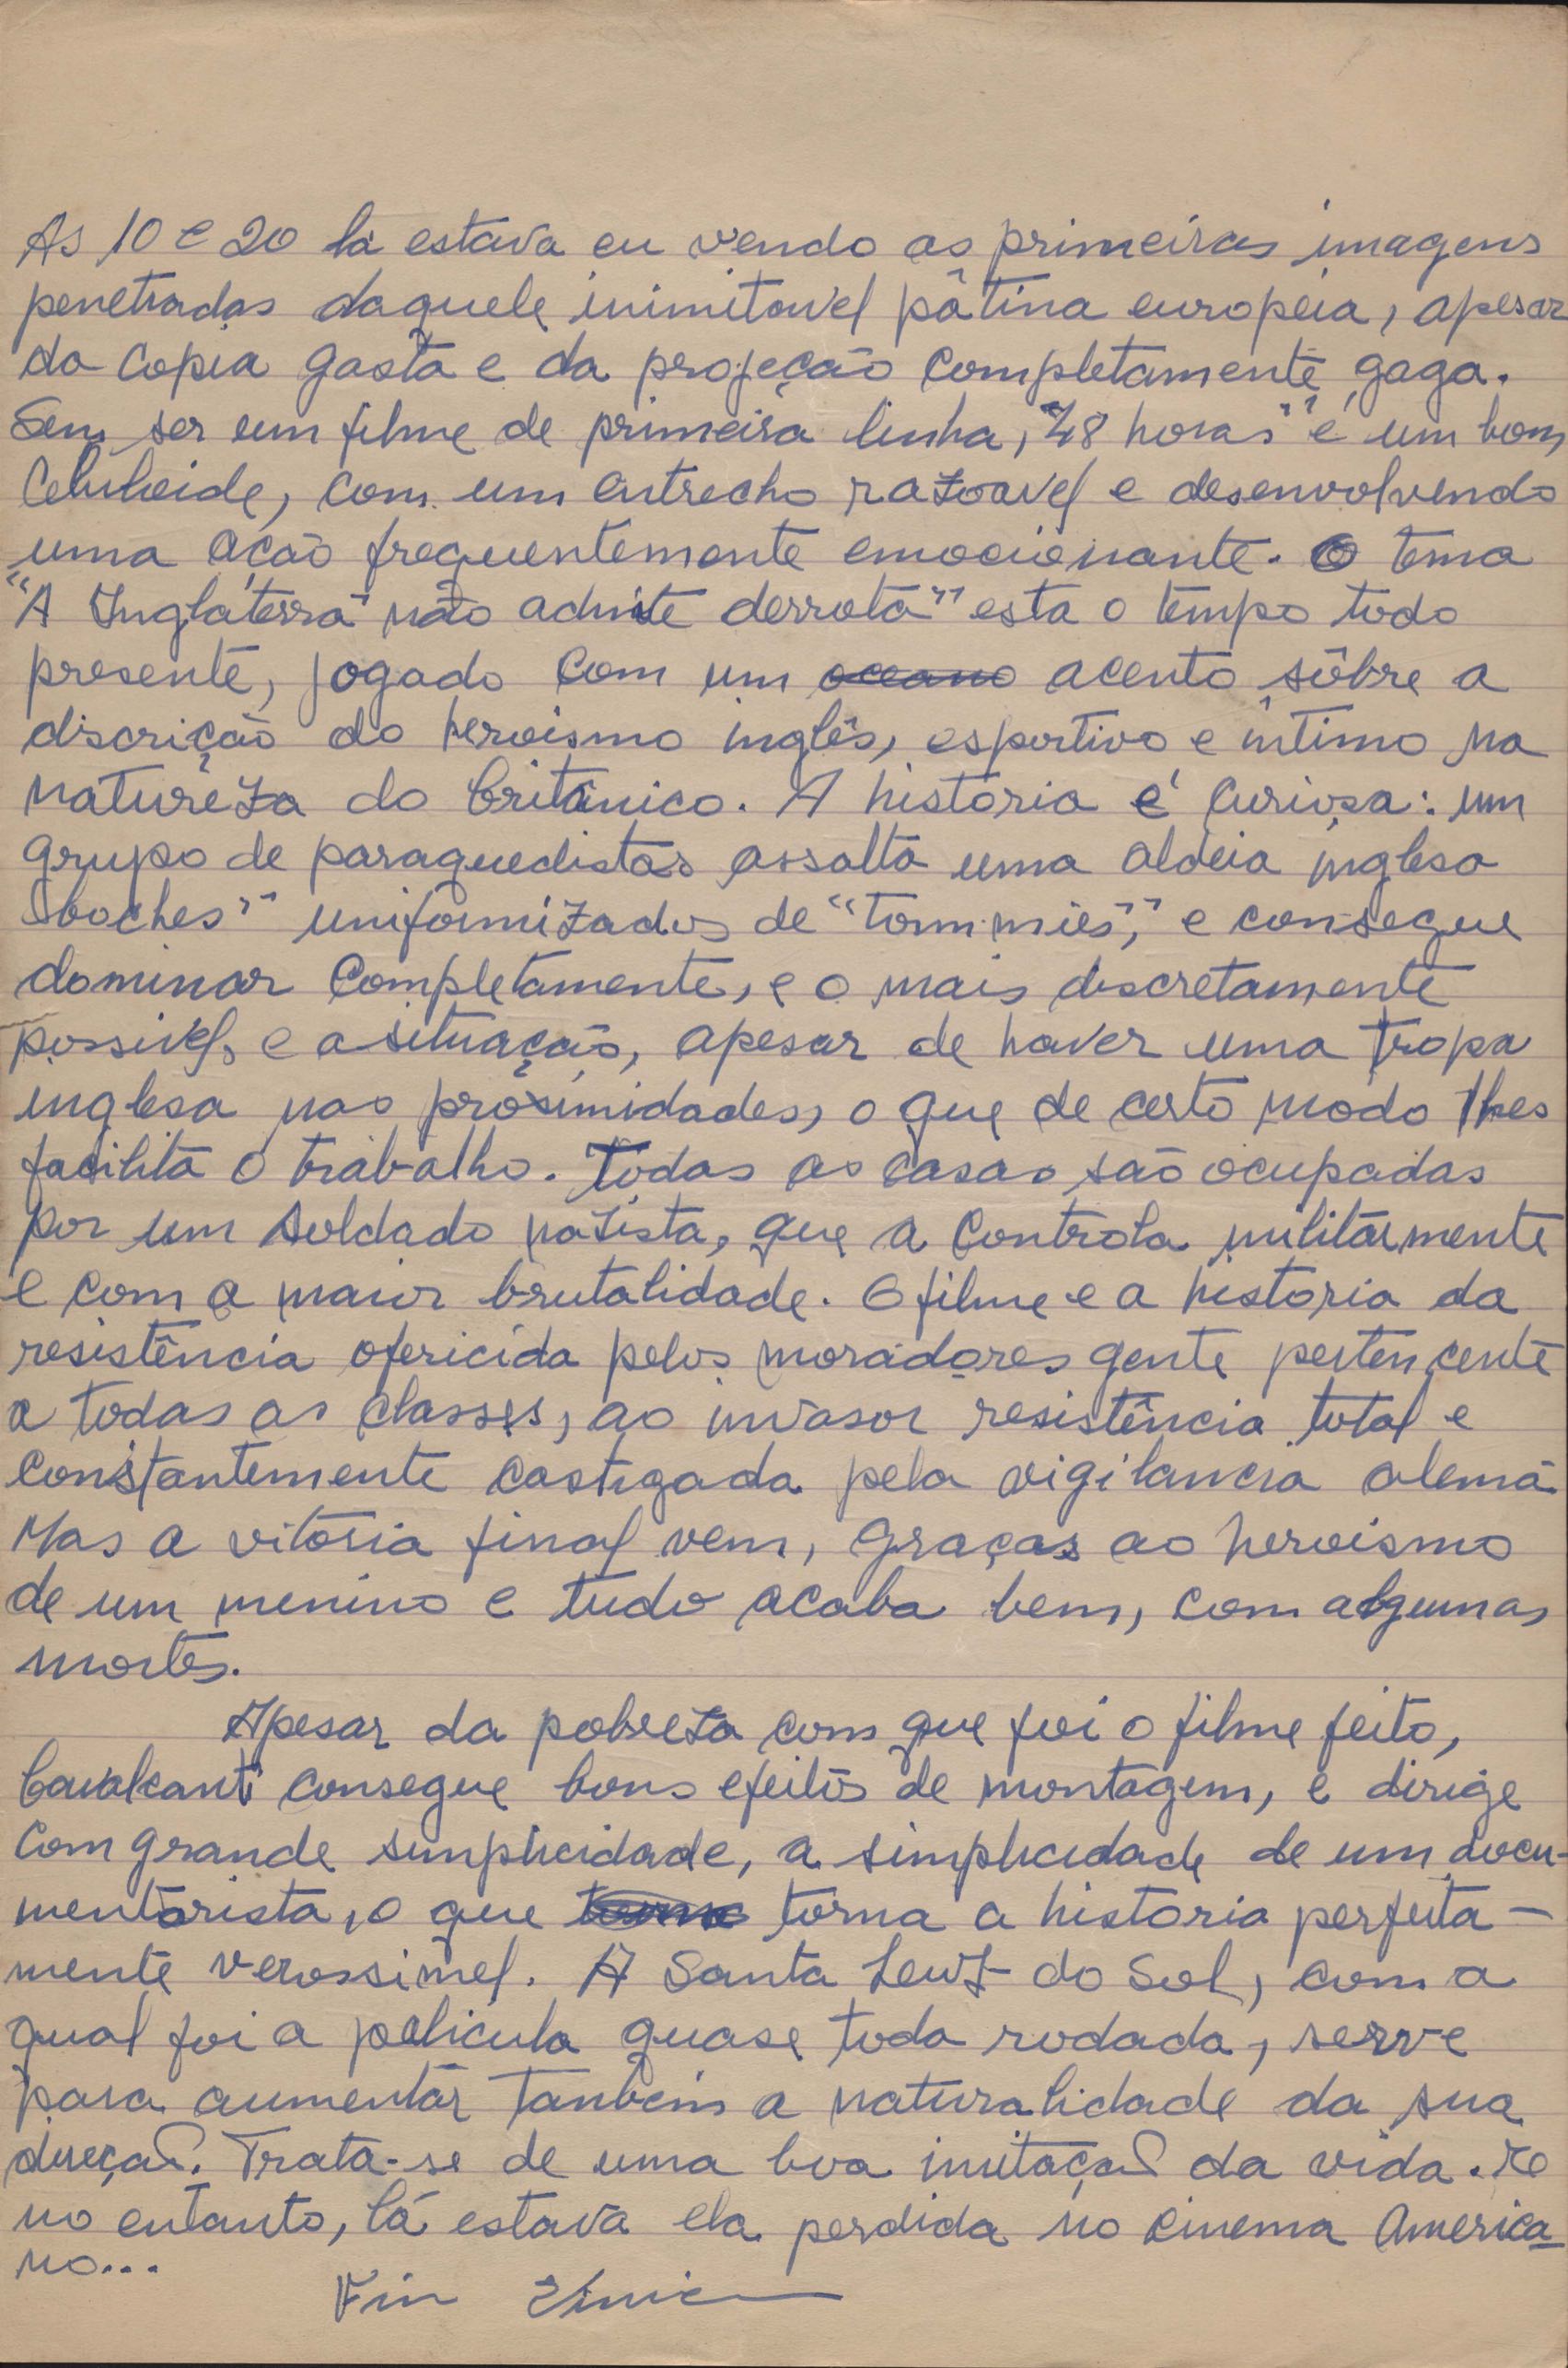 As 10 e 20 lá estava eu vendo as primeiras imagens
penetradas daquele inimitavel pâtina européia, apesar
da copia gasta e da projeção completamente gaga.
Sem ser um filme de primeira linha, "48 horas" é um bom
celuloide, com um entrecho razoavel e desenvolvendo
uma ação frequentemente emocionante. O tema
"A Inglaterra não admite derrota" esta o tempo todo
presente, jogado com um oceano acento sôbre a
discrição do heroismo inglês, esportivo e íntimo na
natureza do britânico. A historia é curiosa: um
grupo de paraquedistas assalta uma aldeia inglesa
"boches" uniformizados de "tommies", e consegue
dominar completamente, e o mais discretamente
possivel, e a situação, apesar de haver uma tropa
inglesa nas proximidades, o que de certo modo lhes
facilita o trabalho. Todas as casas são ocupadas
por um soldado nazista, que a controla militarmente
e com a maior brutalidade. O filme e a historia da
resistência ofericida pelos moradores gente pertencente
a todas as classes, ao invasor resistência total e
constantemente castigada pela vigilancia alemã.
Mas a vitória final vem, graças ao heroismo
de um menino e tudo acaba bem, com algumas
mortes.
Apesar da pobreza com que foi o filme feito,
Cavalcanti consegue bons efeitos de montagem, e dirige
com grande simplicidade, a simplicidade de um docu-
mentarista, o que torna a historia perfeita-
mente verossimel. A Santa Leuz do Sol, com a
qual foi a pelicula quase toda rodada, serve
para aumentar tanbém a naturalidade da sua
direção. Trata-se de uma boa imitação da vida. E
no entanto, lá estava ela perdida no cinema America-
no...